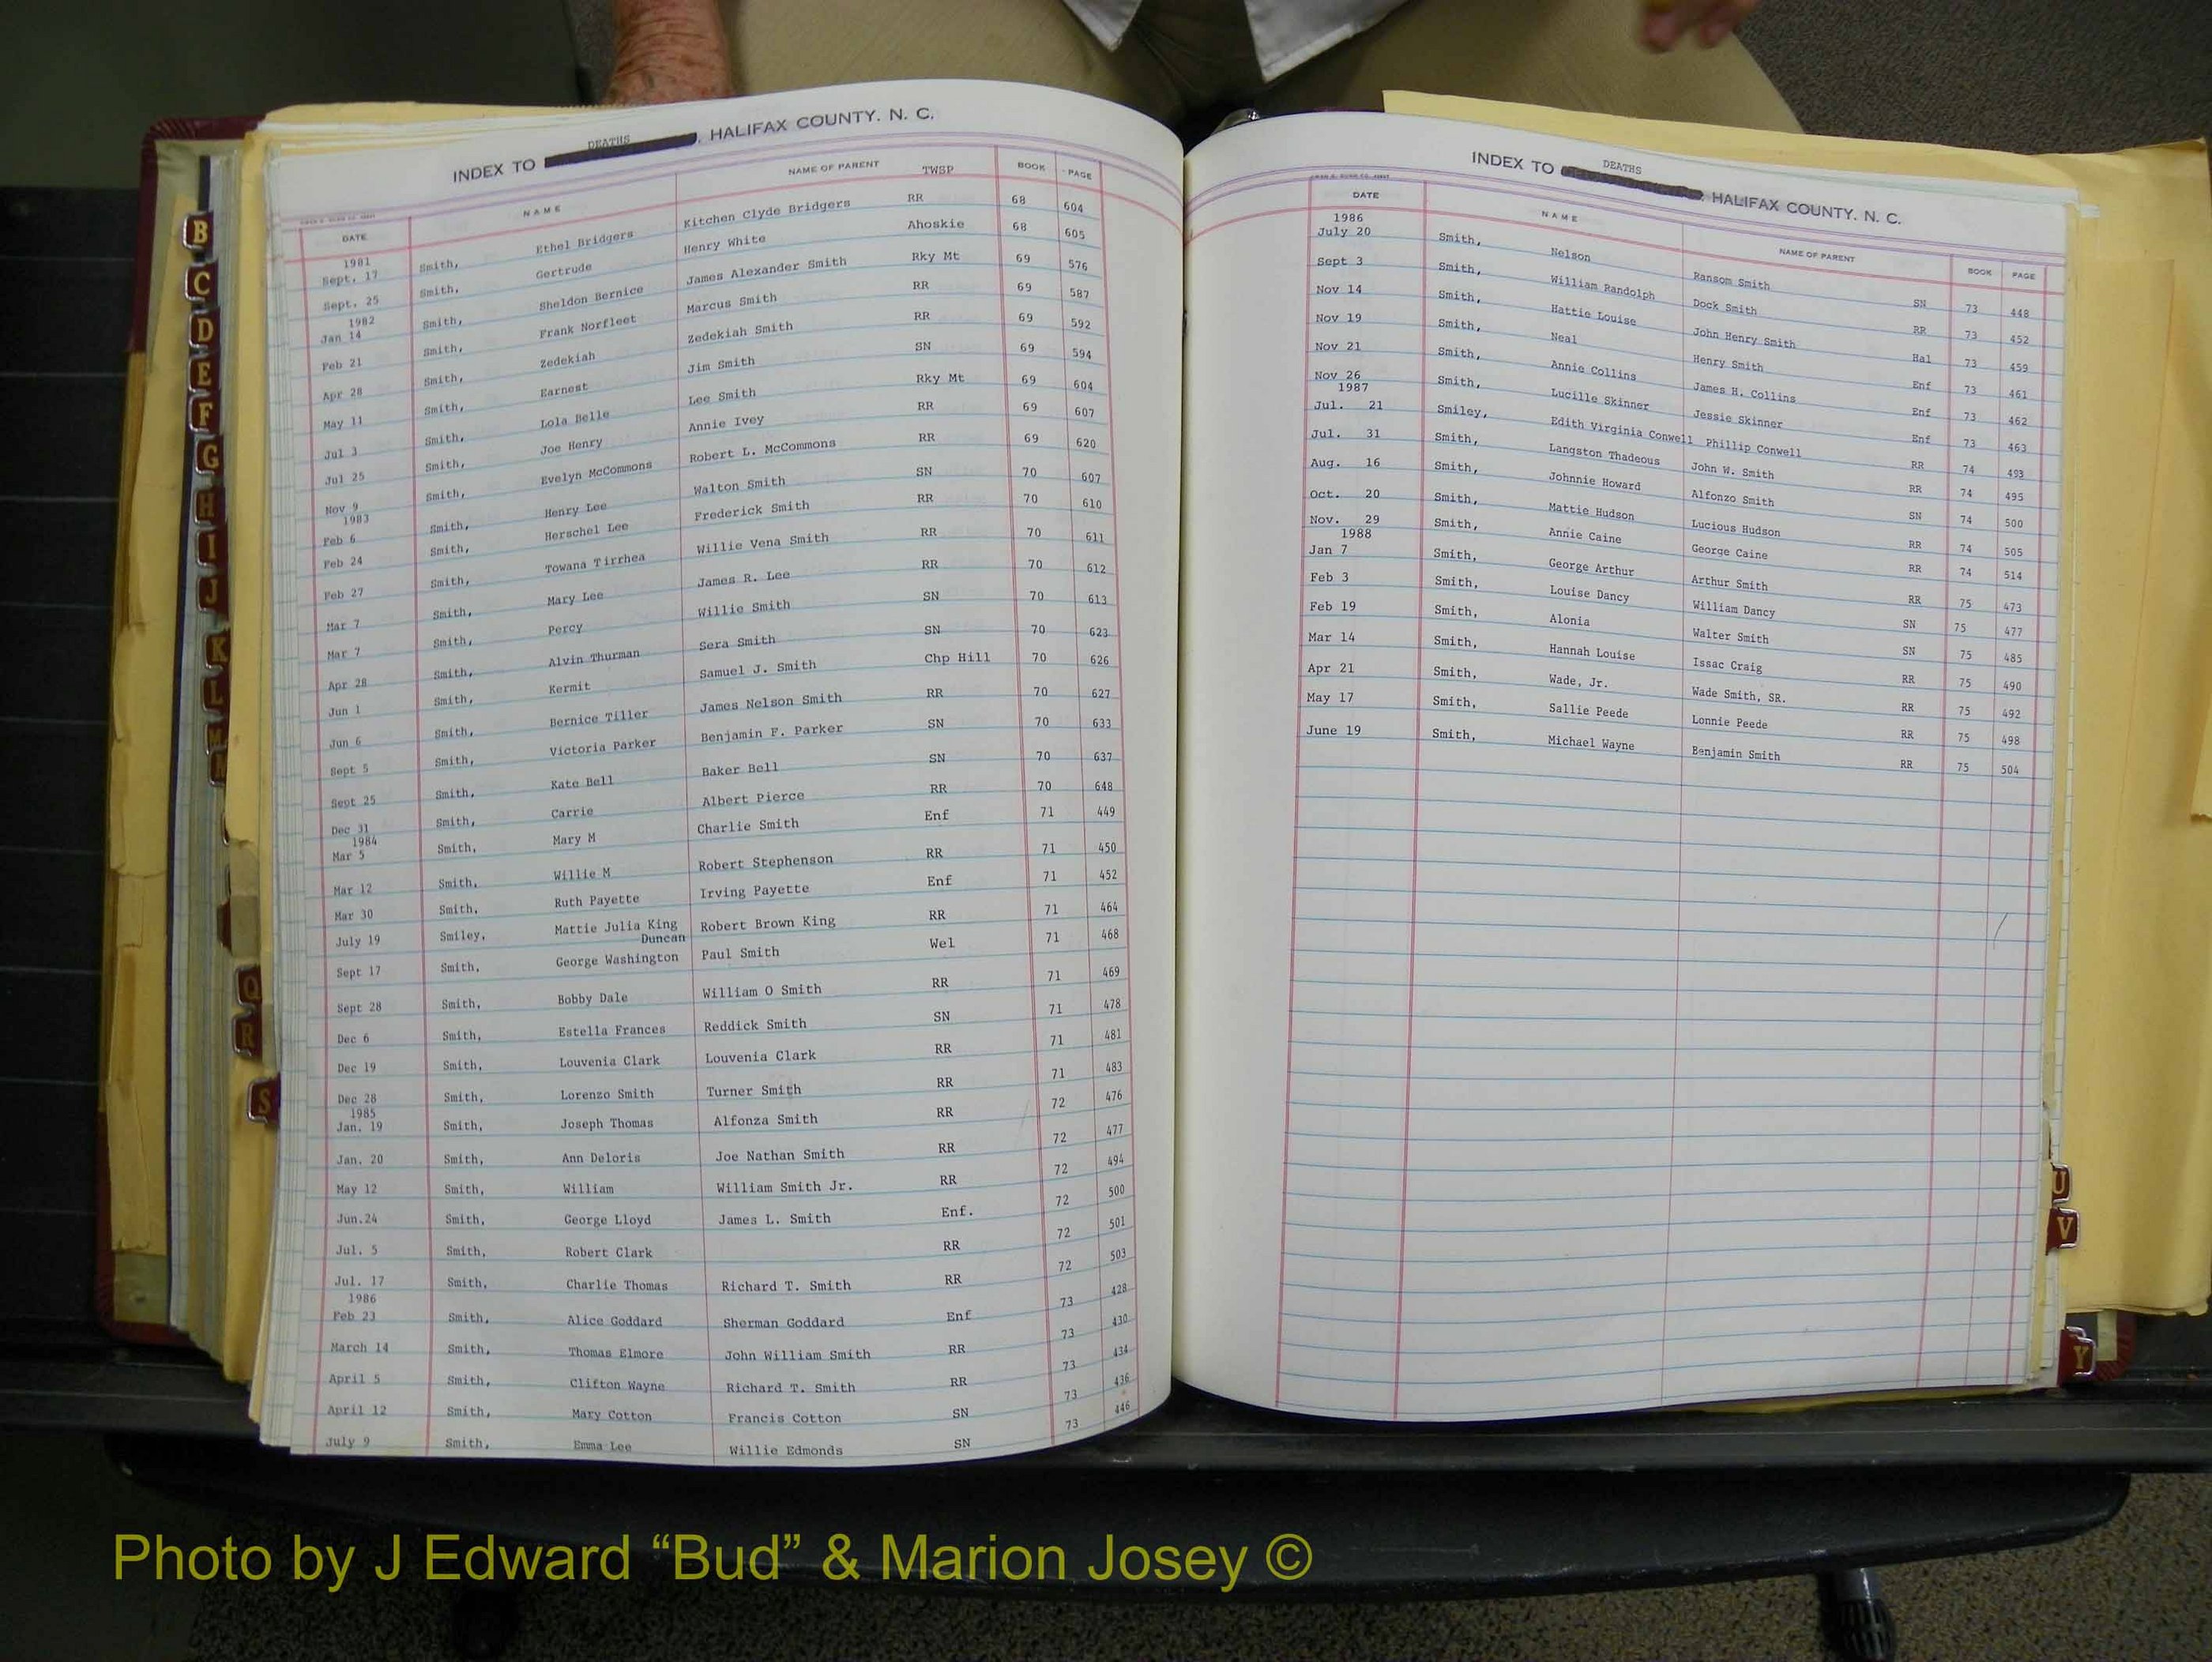 INDEX TO DEATHS, HALIFAX COUNTY. N. C.
DATE NAME NAME OF PARENT TWSP BOOK PAGE
1981
Sept. 17 Smith, Ethel Bridgers Kitchen Clyde Bridgers RR 68 604
Sept. 25 Smith, Gertrude Henry White Ahoskie 68 605
1982
Jan 14 Smith, Sheldon Bernice James Alexander Smith Rky Mt 69 576
Feb 21 Smith, Frank Norfleet Marcus Smith RR 69 587
Apr 28 Smith, Zedekiah Zedekiah Smith RR 69 592
May 11 Smith, Earnest Jim Smith SN 69 594
Jul 3 Smith, Lola Belle Lee Smith Rky Mt 69 604
Jul 25 Smith, Joe Henry Annie Ivey RR 69 607
Nov 9 Smith, Evelyn McCommons Robert L. McCommons RR 69 620
1983
Feb 6 Smith, Henry Lee Walton Smith SN 70 607
Feb 24 Smith, Herschel Lee Frederick Smith RR 70 610
Feb 27 Smith, Towana Tirrhea Willie Vena Smith RR 70 611
Mar 7 Smith, Mary Lee James R. Lee RR 70 612
Mar 7 Smith, Percy Willie Smith SN 70 613
Apr 28 Smith, Alvin Thurman Sera Smith SN 70 623
Jun 1 Smith, Kermit Samuel J. Smith Chp Hill 70 626
Jun 6 Smith, Bernice Tiller James Nelson Smith RR 70 627
Sept 5 Smith, Victoria Parker Benjamin F. Parker SN 70 633
Sept 25 Smith, Kate Bell Baker Bell SN 70 637
Dec 31 Smith, Carrie Albert Pierce RR 70 648
1984
Mar 5 Smith, Mary M Charlie Smith Enf 71 449
Mar 12 Smith, Willie M Robert Stephenson RR 71 450
Mar 30 Smith, Ruth Payette Irving Payette Enf 71 452
July 19 Smiley, Mattie Julia King Robert Brown King RR 71 464
Duncan
Sept 17 Smith, George Washington Paul Smith Wel 71 468
Sept 28 Smith, Bobby Dale William O Smith RR 71 469
Dec 6 Smith, Estella Frances Reddick Smith SN 71 478
Dec 19 Smith, Louvenia Clark Louvenia Clark RR 71 481
Dec 28 Smith, Lorenzo Smith Turner Smith RR 71 483
1985
Jan. 19 Smith, Joseph Thomas Alfonza Smith RR 72 476
Jan. 20 Smith, Ann Deloris Joe Nathan Smith RR 72 477
May 12 Smith, William William Smith Jr. RR 72 494
Jun.24 Smith, George Lloyd James L. Smith Enf. 72 500
Jul. 5 Smith, Robert Clark RR 72 501
Jul. 17 Smith, Charlie Thomas Richard T. Smith RR 72 503
1986
Feb 23 Smith, Alice Goddard Sherman Goddard Enf 73 428
March 14 Smith, Thomas Elmore John William Smith RR 73 430
April 5 Smith, Clifton Wayne Richard T. Smith RR 73 434
April 12 Smith, Mary Cotton Francis Cotton SN 73 436
July 9 Smith, Emma Lee Willie Edmonds SN 73 446
INDEX TO DEATHS, HALIFAX COUNTY. N. C.
DATE NAME NAME OF PARENT BOOK PAGE
1986
July 20 Smith, Nelson Ransom Smith SN 73 448
Sept 3 Smith, William Randolph Dock Smith RR 73 452
Nov 14 Smith, Hattie Louise John Henry Smith Hal 73 459
Nov 19 Smith, Neal Henry Smith Enf 73 461
Nov 21 Smith, Annie Collins James H. Collins Enf 73 462
Nov 26 Smith, Lucille Skinner Jessie Skinner Enf 73 463
1987
Jul. 21 Smiley, Edith Virginia Conwell Phillip Conwell RR 74 493
Jul. 31 Smith, Langston Thadeous John W. Smith RR 74 495
Aug. 16 Smith, Johnnie Howard Alfonzo Smith SN 74 500
Oct. 20 Smith, Mattie Hudson Lucious Hudson RR 74 505
Nov. 29 Smith, Annie Caine George Caine RR 74 514
1988
Jan 7 Smith, George Arthur Arthur Smith RR 75 473
Feb 3 Smith, Louise Dancy William Dancy SN 75 477
Feb 19 Smith, Alonia Walter Smith SN 75 485
Mar 14 Smith, Hannah Louise Issac Craig RR 75 490
Apr 21 Smith, Wade, Jr. Wade Smith, SR. RR 75 492
May 17 Smith, Sallie Peede Lonnie Peede RR 75 498
June 19 Smith, Michael Wayne Benjamin Smith RR 75 504
B
C
D
E
F
G
H
I
J
K
L
M
Q
R
S
U
V
Y
Photo by J Edward “Bud” & Marion Josey ©